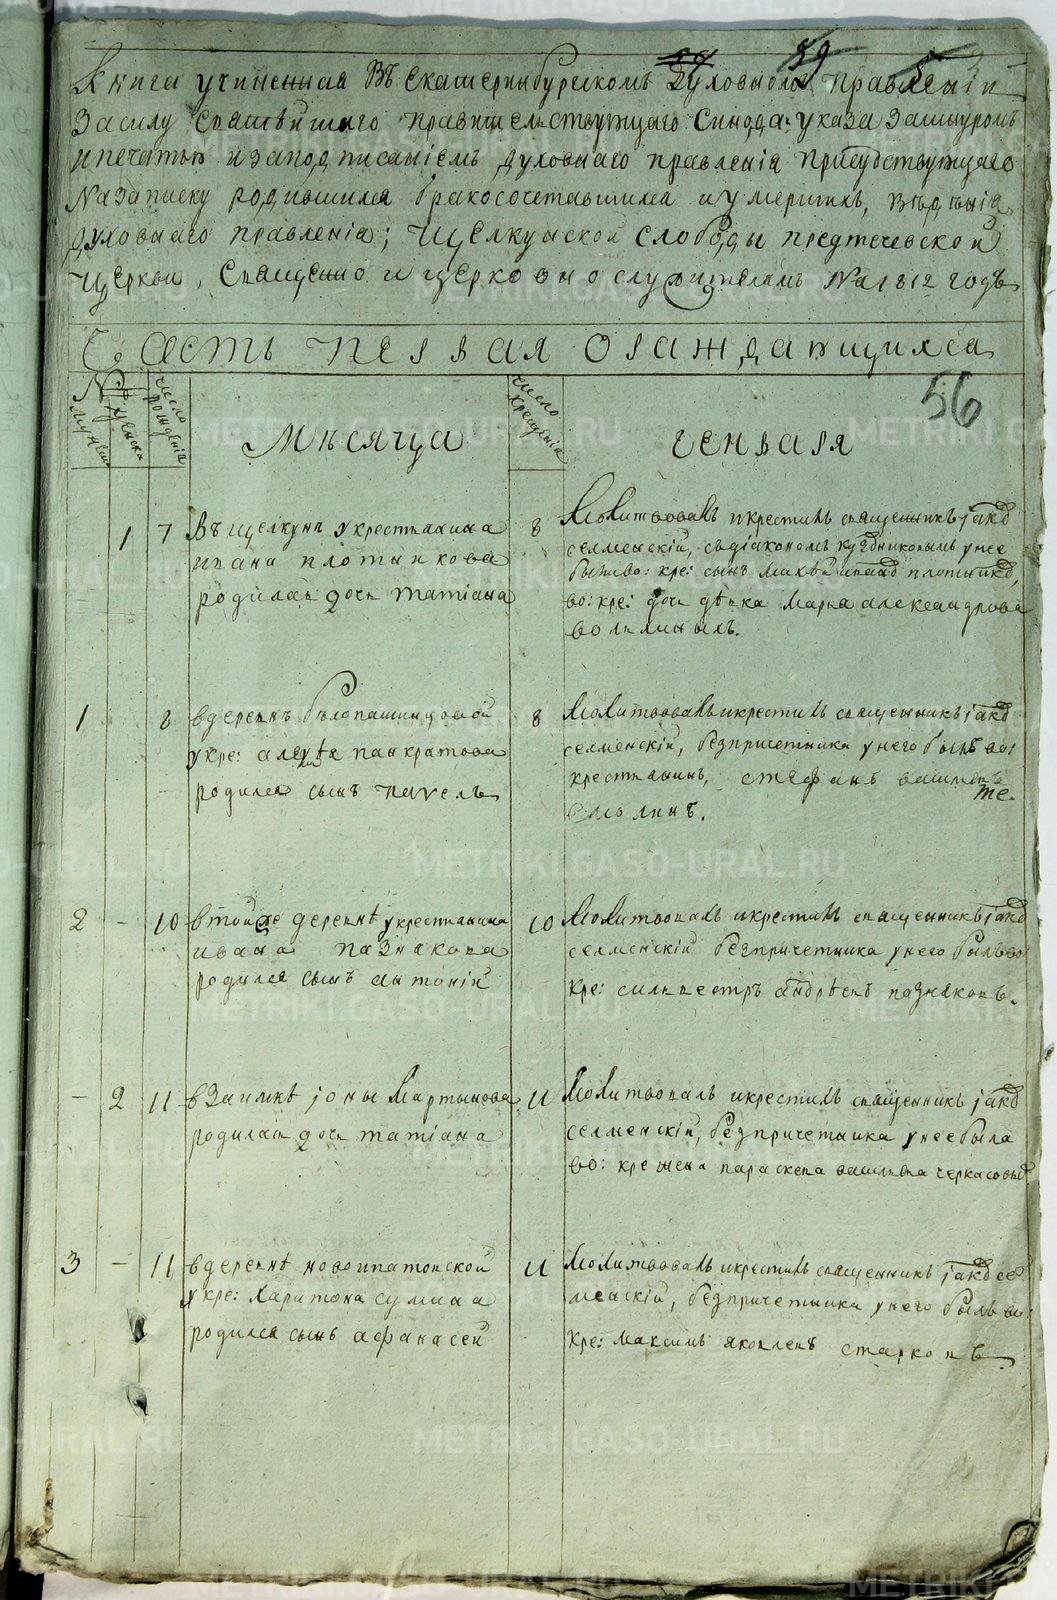 Книга учиненная Въ Екатеринбургскомъ Духовномъ правленіи
За силу Святѣйшаго правительствующаго Синода указа за шнуромъ
и печатью и за подписаніемъ духовнаго правленія присудствующаго
На записку родившихся бракосочетавшихся и умершихъ, вѣденія
духовнаго правленія; Щелкунской слободы предтечевской
церкви, Священно и церковнослужителямъ На 1812 годъ
59
56
Часть первая о раждающихся
число рожденія
Мѣсяца
число крещенія
генваря
1
7
Въ щелкунѣ у крестьянина
ивана плотникова
родилась дочь татіана
8
Молитвовалъ и крестилъ священникъ іаковъ
селменскій, съ діакономъ
сынъ
во: кре: дочь дѣвка Марѳа александрова
1
8
в деревнѣ бѣлопашинцовой
у кре: панкратова
родился сынъ павелъ
8
Молитвовалъ и крестилъ священникъ іаковъ
селменскій, безпричетника у него былъ во:
крестьянинъ, стефанъ
2
-
10
в той же деревнѣ у крестьянина
ивана пазнакова
родился сынъ антоній
10
Молитвовалъ и крестилъ священникъ іаковъ
селменскій безпричетника у него былъ во
кре: силвестръ андрѣевъ пазнаковъ.
-
2
11
в Заимкѣ іоны Мартынова
родилась дочь татіана
11
Молитвовалъ и крестилъ священникъ іаковъ
селменскій, безпричетника у нее была
во: кре параскева
3
-
11
в деревнѣ новоипатовской
у кре: Харитона сумина
родился сынъ афанасей
11
Молитвовалъ и крестилъ священникъ іаковъ сел
менскій, безпричетника у него былъ во:
кре: Максимъ яковлевъ старковъ
METRIKI.GASO-URAL.RU